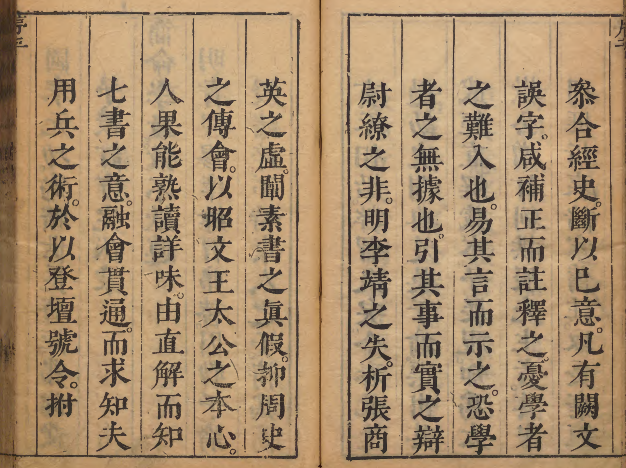 叅合經史。斷以巳意。凡有闕文
誤字。咸補正而註釋之。憂學者
之難入也。易其言而示之。恐學
者之無據也。引其事而實之。辯
尉繚之非。明李靖之失。析張商
英之虛。闡素書之眞假。抑周史
之傳會。以昭文王太公之本心。
人果能熟讀詳味。由直解而知
七書之意。融會貫通。而求知夫
用兵之術。於以登壇號令。拊